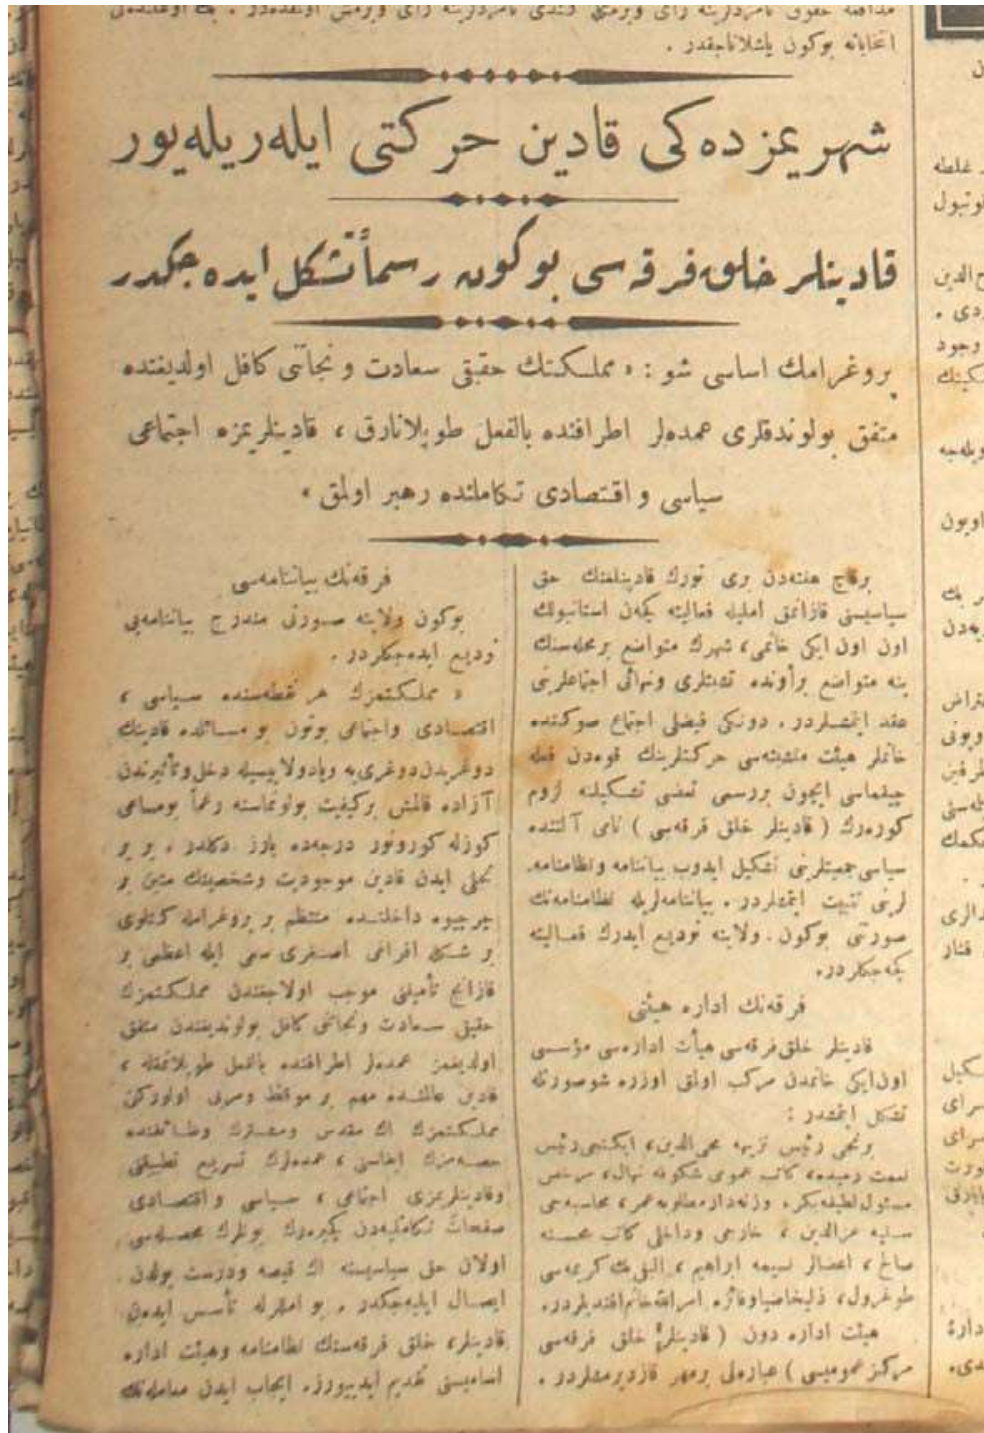 مدافعه حقوق نامزدلرينه رأى ويرمك كندى نامزدلرينه رأى ويرمش اولمقدەدر .
انتخاباته بوكون باشلاناجقدر .
شهريمزدەكى قادين حركتى ايلەريلەيور
قادينلر خلق فرقەسى بوكون رسماً تشكل ايدەجكدر
پروغرامك اساسى شو : « مملكتك حقيقى سعادت و نجاتنى كافل اولديغنده
متفق بولوندقلرى عمدەلر اطرافنده بالفعل طوپلانارق ، قادينلريمزه اجتماعى
سياسى و اقتصادى تكاملنده رهبر اولمق »
برقاچ هفتەدن برى تورك قادينلغنك حق
سياسيسنى قازانمق امليله فعاليته كچن استانبولك
اون اون ايكى خانمى ، شهرك متواضع بر محلەسنك
ينه متواضع بر أونده تشبثلرى ونهائى اجتماعلرينى
عقد ايتمشلردر . دونكى فيضلى اجتماع صوكنده
خانملر هيئت متشبثەسى حركتلرينك قوەدن فعله
چيقماسى ايچون بر رسمى تعضى تشكيلنه لزوم
كورەرك ( قادينلر خلق فرقەسى ) نامى آلتنده
سياسى جمعيتلرينى تشكيل ايدوب بياننامه ونظامنامه
لرينى تثبيت ايتمشلردر . بياننامەلريله نظامنامەنك
صورتنى بوكون ولايته توديع ايدرك فعاليته
كچەجكلردر .
فرقەنك اداره هيئتى
قادينلر خلق فرقەسى هيأت ادارەسى مؤسسى
اون ايكى خانمدن مركب اولمق اوزره شو صورتله
تشكل ايتمشدر :
برنجى رئيس نزيهه محى الدين ، ايكنجى رئيس
نعمت رميده ، كاتب عمومى شكوفه نهال ، مرخص
مسئول لطيفه بكر ، وزنەدار مطلوبه عمر ، محاسبەجى
سنيه عزالدين ، خارجى وداخلى كاتب محسنه
صالح ، اعضالر نسيمه ابراهيم ، البق بك كريمەسى
طوغرول ، ذليخا ضيا وفائزه امراللّه خانم افنديلردر .
هيئت اداره دون ( قادينلر خلق فرقەسى
مركز عموميسى ) عبارەلى بر مهر قازديرمشلردر .
فرقەنك بياننامەسى
بوكون ولايته صورتى مندرج بياننامەيى
توديع ايدەجكلردر .
« مملكتمزك هر نقطەسنده سياسى ،
اقتصادى واجتماعى بوتون بو مسائلده قادينك
دوغريدن دوغرى يه ويا دولاييسيله دخل وتأثيرندن
آزاده قالمش بر كيفيت بولونماسنه رغماً بو مساعى
كوزله كورونور درجەده بارز دكلدر . بو بر
تجلى ايدن قادين موجوديت وشخصيتك متين بر
چرچيوه داخلنده منتظم بر پروغرامله كتلوى
بر شكله افراغى اصغرى سعى ايله اعظمى بر
قازانج تأمينى موجب اولاجغندن مملكتمزك
حقيقى سعادت ونجاتنى كافل بولونديغندن متفق
اولديغمز عمدەلر اطرافنده بالفعل طوپلانمقله ،
قادين عالمنده مهم بر موقظ ومربى اولوركن
مملكتمزك اك مقدس ومشترك وظائفنده
حصەمزك ايفاسنى ، عمدەلرك تسريع تطبيقنى
وقادينلريمزى اجتماعى ، سياسى و اقتصادى
صفحات تكامليەدن كچيرەرك بونلرك محصلەسى
اولان حق سياسيسنه اك قيصه ودرست يولدن
ايصال ايليەجكدر . بو املرله تأسس ايدن
قادينلر خلق فرقەسنك نظامنامه وهيئت اداره
اسامیسنى تقديم ايدييورز . ايجاب ايدن معاملەنك